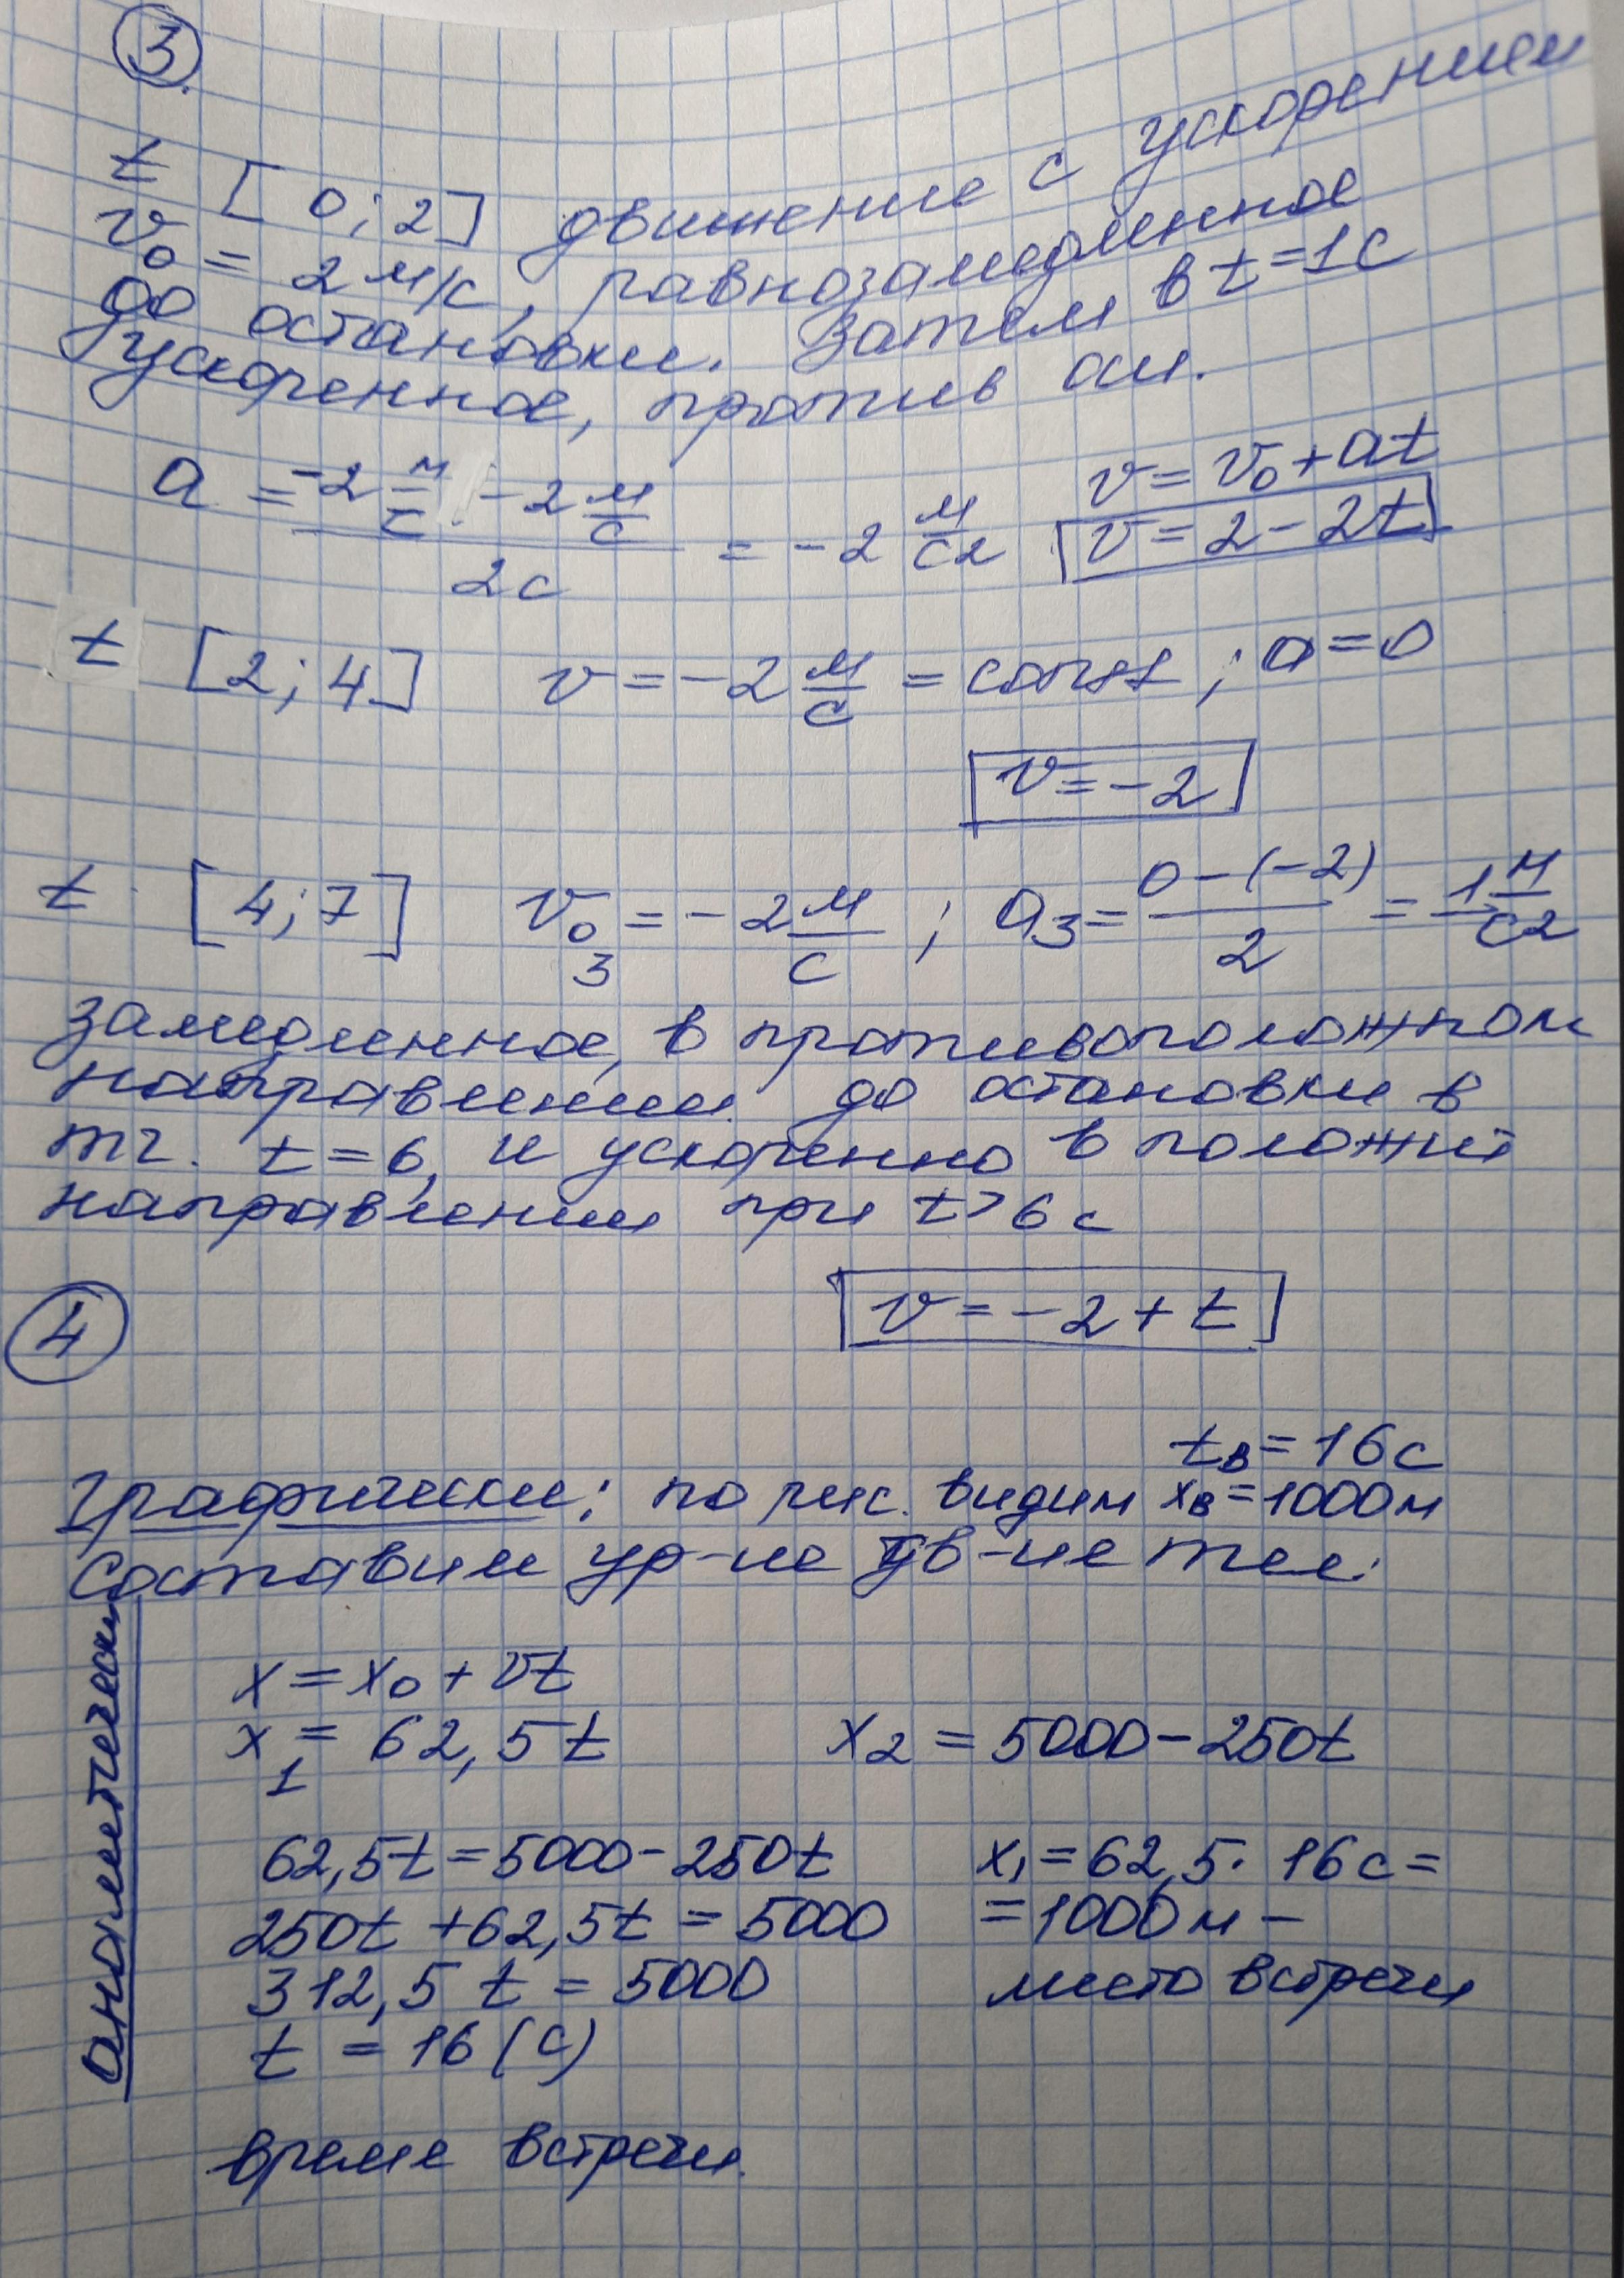 3.
t [0; 2] движение с ускорением
v₀ = 2 м/с, равнозамедленное
до остановки. Затем в t=1с
ускоренное, против оси.
a = (-2 м/с - 2 м/с)/2с = -2 м/с2
v = v₀ + at
v = 2 - 2t
t [2; 4] v = -2 м/с = const; a = 0
v = -2
t [4; 7] v₀₃ = -2 м/с; a₃ = (0-(-2))/2 = 1 м/с2
замедленное, в противоположном
направлении до остановки в
тч. t = 6, и ускоренно в полож
направлении при t > 6 с
v = -2 + t
4
tв = 16 с
Графически: по рис. видим xв = 1000 м
Составим ур-ие дв-ие тел:
аналитически
x = x₀ + vt
x₁ = 62,5t x₂ = 5000 - 250t
62,5t = 5000 - 250t x₁ = 62,5 · 16 с =
250t + 62,5t = 5000 = 1000 м -
312,5 t = 5000 место встречи
t = 16 (с)
время встречи.